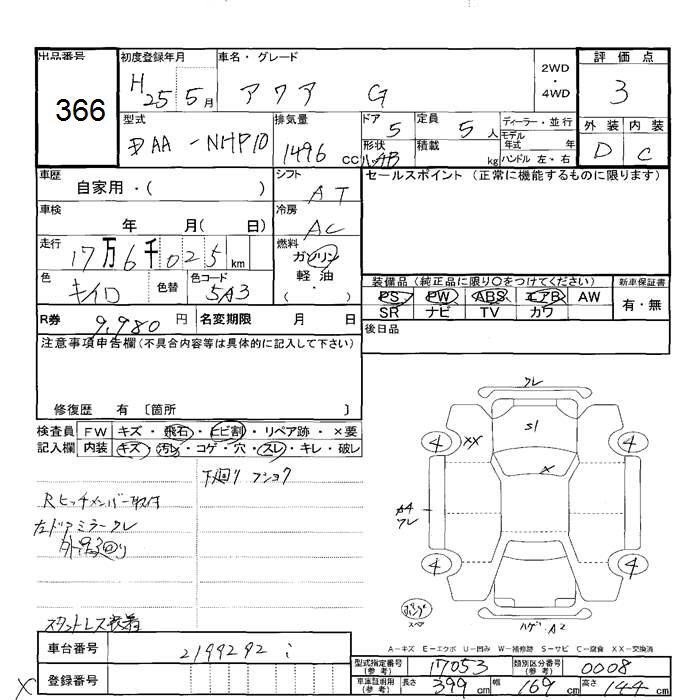 出品番号
366
初度登録年月
H 25 5月
車名・グレード
アクア G
2WD
・
4WD
評価点
3
外装 内装
D C
型式
DAA-NHP10
排気量
1496 cc
ドア
5
形状
定員
5人
積載
kg
ディーラー・並行
モデル
年式 年
ハンドル 左・右
車歴
自家用・( )
シフト
AT
セールスポイント (正常に機能するものに限ります)
車検
年 月( 日)
冷房
AC
走行
17万6千025km
燃料
ガソリン
軽油
( ・ )
色
キイロ
色替
色コード
5A3
装備品 (純正品に限り○をつけてください)
PS PW ABS エアB AW
SR ナビ TV カワ
新車保証書
有・無
R券 9,980円
名変期限 月 日
後日品
注意事項申告欄(不具合内容等は具体的に記入して下さい)
修復歴 有 〔箇所 〕
検査員
記入欄
FW キズ・飛石・ヒビ割・リペア跡・×要
内装 キズ・汚レ・コゲ・穴・スレ・キレ・破レ
下回り
Rヒッチメンバー取付
左ドアミラークレ
スタットレス装着
クレ
S1
4 XX 4
X
A4
クレ
4 4
ハゲ・A2
A-キズ E-エクボ U-凹み W-補修跡 S-サビ C-腐食 XX-交換済
車台番号
2199292
登録番号
X
型式指定番号
(参考)
17053
類別区分番号
(参考)
0008
車庫証明用
(参考)
長さ 399cm
幅 169cm
高さ 144cm